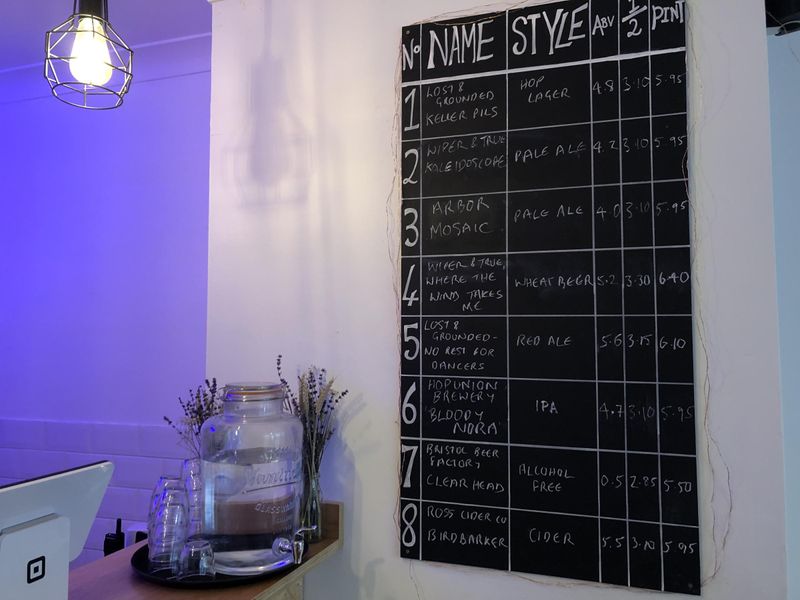 Nº NAME STYLE ABV 1/2 PINT
1 LOST & GROUNDED KELLER PILS HOP LAGER 4.8 3.10 5.95
2 WIPER & TRUE KALEIDOSCOPE PALE ALE 4.2 3.10 5.95
3 ARBOR MOSAIC PALE ALE 4.0 3.10 5.95
4 WIPER & TRUE, WHERE THE WIND TAKES ME WHEAT BEER 5.2 3.30 6.40
5 LOST & GROUNDED - NO REST FOR DANCERS RED ALE 5.6 3.15 6.10
6 HOP UNION BREWERY BLOODY NORA IPA 4.7 3.10 5.95
7 BRISTOL BEER FACTORY CLEAR HEAD ALCOHOL FREE 0.5 2.85 5.50
8 ROSS CIDER CO BIRDBARKER CIDER 5.5 3.10 5.95